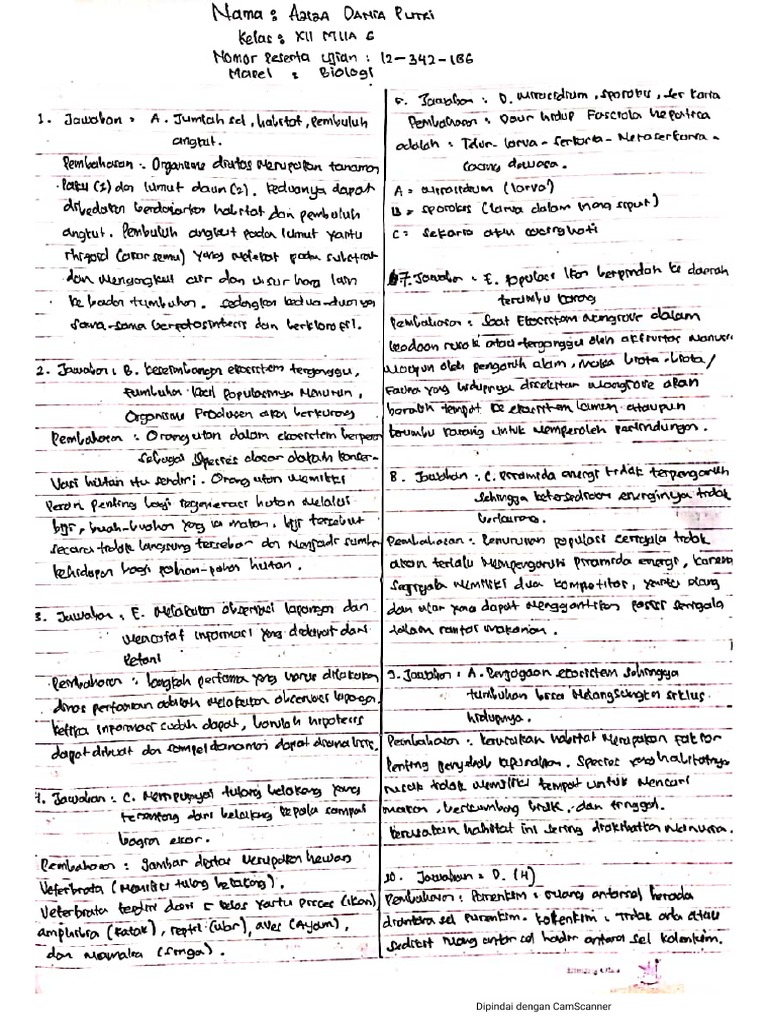 Nama : Aziza Dania Putri
Kelas : XII MIIA 6
Nomor Peserta Ujian : 12-342-186
Mapel : Biologi
1. Jawaban : A. Jumlah sel, habitat, pembuluh
angkut.
Pembahasan : Organisme diatas merupakan tanaman
paku (1) dan lumut daun (2). Keduanya dapat
dibedakan berdasarkan habitat dan pembuluh
angkut. Pembuluh angkut pada lumut yaitu
rhizoid (akar semu) yang melekat pada substrat
dan mengangkut air dan unsur hara lain
ke badan tumbuhan. Sedangkan kedua-duanya
sama-sama berfotosintesis dan berklorofil.
2. Jawaban : B. keseimbangan ekosistem terganggu,
tumbuhan kecil populasinya menurun,
Organisme Produsen akan berkurang
Pembahasan : Orang utan dalam ekosistem berperan
sebagai Spesies dalam konser-
vasi hutan itu sendiri. Orang utan memiliki
Peran penting bagi regenerasi hutan melalui
biji, buah-buahan yang ia makan, biji tersebut
secara tidak langsung tersebar dan menjadi sumber
kehidupan bagi pohon-pohon hutan.
3. Jawaban : E. Melakukan observasi lapangan dan
mencatat informasi yang didapat dari
Petani
Pembahasan : langkah pertama yang harus dilakukan
dinas pertanian adalah melakukan observasi lapangan.
ketika informasi sudah dapat, barulah hipotesis
dapat dibuat dan sampel tanaman dapat dianalisis.
4. Jawaban : C. Mempunyai tulang belakang yang
terentang dari belakang kepala sampai
bagian ekor.
Pembahasan : gambar diatas merupakan hewan
Veterbrata (memiliki tulang belakang).
Veterbrata terdiri dari 5 kelas yaitu pisces (ikan)
amphibia (katak), reptil (ular), aves (Ayam),
dan mamalia (singa).
6. Jawaban : D. mirasidium, sporokis, serkaria
Pembahasan : Daur hidup Fasciola hepatica
adalah : Telur - larva - serkaria - Metaserkaria -
cacing dewasa.
A = mirasidium (larva)
B = sporokis (larva dalam inang siput)
C = sekaria atau cacing hati
7. Jawaban : E. populasi ikan berpindah ke daerah
terumbu karang
Pembahasan : Saat Ekosistem mangrove dalam
keadaan rusak atau terganggu oleh aktivitas manusia
maupun oleh pengaruh alam, maka biota-biota/
Fauna yang hidupnya diekosistem mangrove akan
beralih tempat ke ekosistem lamun ataupun
terumbu karang untuk memperoleh perlindungan.
8. Jawaban : C. Piramida energi tidak terpengaruh
sehingga ketersediaan energinya tidak
berkurang.
Pembahasan : Penurunan populasi serigala tidak
akan terlalu mempengaruhi Piramida energi, karena
Serigala memiliki dua kompetitor, yaitu elang
dan ular yang dapat menggantikan posisi serigala
dalam rantai makanan.
9. Jawaban : A. Penjagaan ekosistem sehingga
tumbuhan bisa melangsungkan siklus
hidupnya.
Pembahasan : kerusakan habitat merupakan faktor
Penting penyebab kepunahan. Spesies yang habitatnya
rusak tidak memiliki tempat untuk mencari
makan, berkembang biak, dan tinggal.
kerusakan habitat ini sering diakibatkan manusia.
10. Jawaban : D. (4)
Pembahasan : Parenkim : ruang antarsel berada
diantara sel parenkim. kolenkim : Tidak ada atau
sedikit ruang antar sel hadir antara sel kolenkim.
Dipindai dengan CamScanner